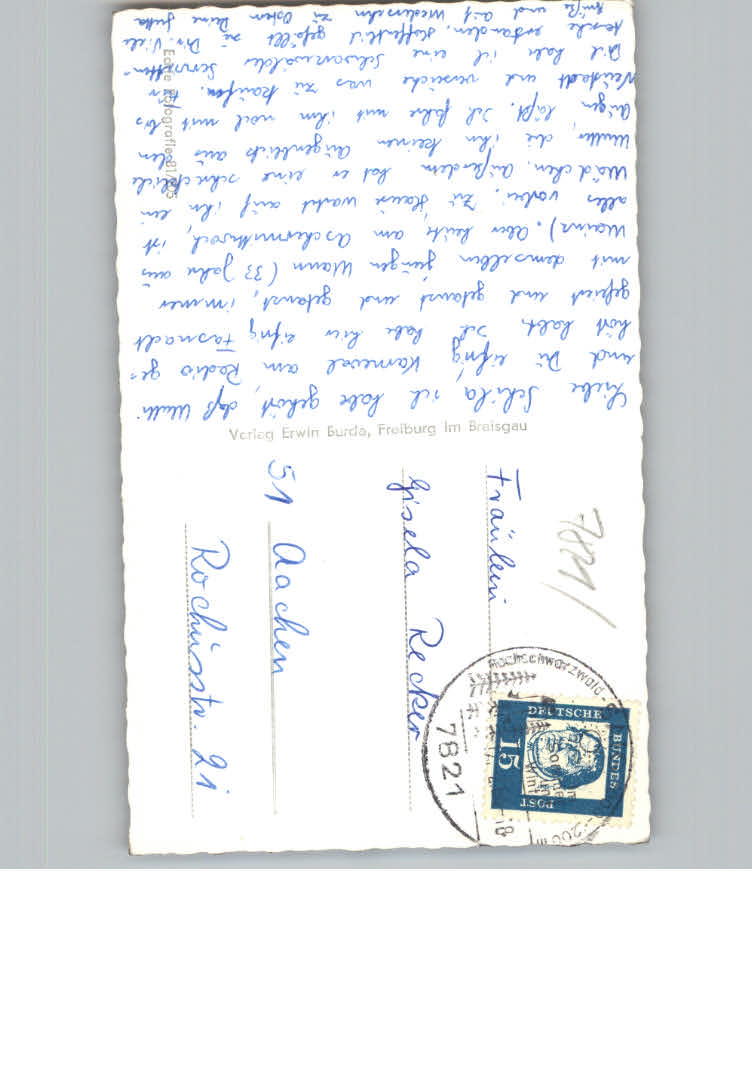 Liebe Gisela, ich habe gehört, daß Mutti
und Du eifrig Karneval am Radio ge-
hört habt. Ich habe hier eifrig Fasnacht
gefeiert und getanzt und getanzt, immer
mit demselben jungen Mann (33 Jahre aus
Mainz). Aber heute am Aschermittwoch, ist
alles vorbei. Zu Hause wartet auf ihn ein
Mädchen. Außerdem hat er eine schreckliche
Mutter, die ihn keinen Augenblick aus den
Augen läßt. Ich fahre mit ihm noch mit bis
Neustadt und versuche was zu kaufen. Für
Dich habe ich eine Schwarzwälder Servietten-
tasche erstanden. Hoffentlich gefällt sie Dir. Viele
Grüße und auf Wiedersehn zu Ostern Deine Jutta
Verlag Erwin Burda, Freiburg im Breisgau
Echte Fotografie
7821/
Fräulein
Gisela Recker
51 Aachen
Rochusstr. 21
7821
Hochschwarzwald
DEUTSCHE
BUNDES
POST
15